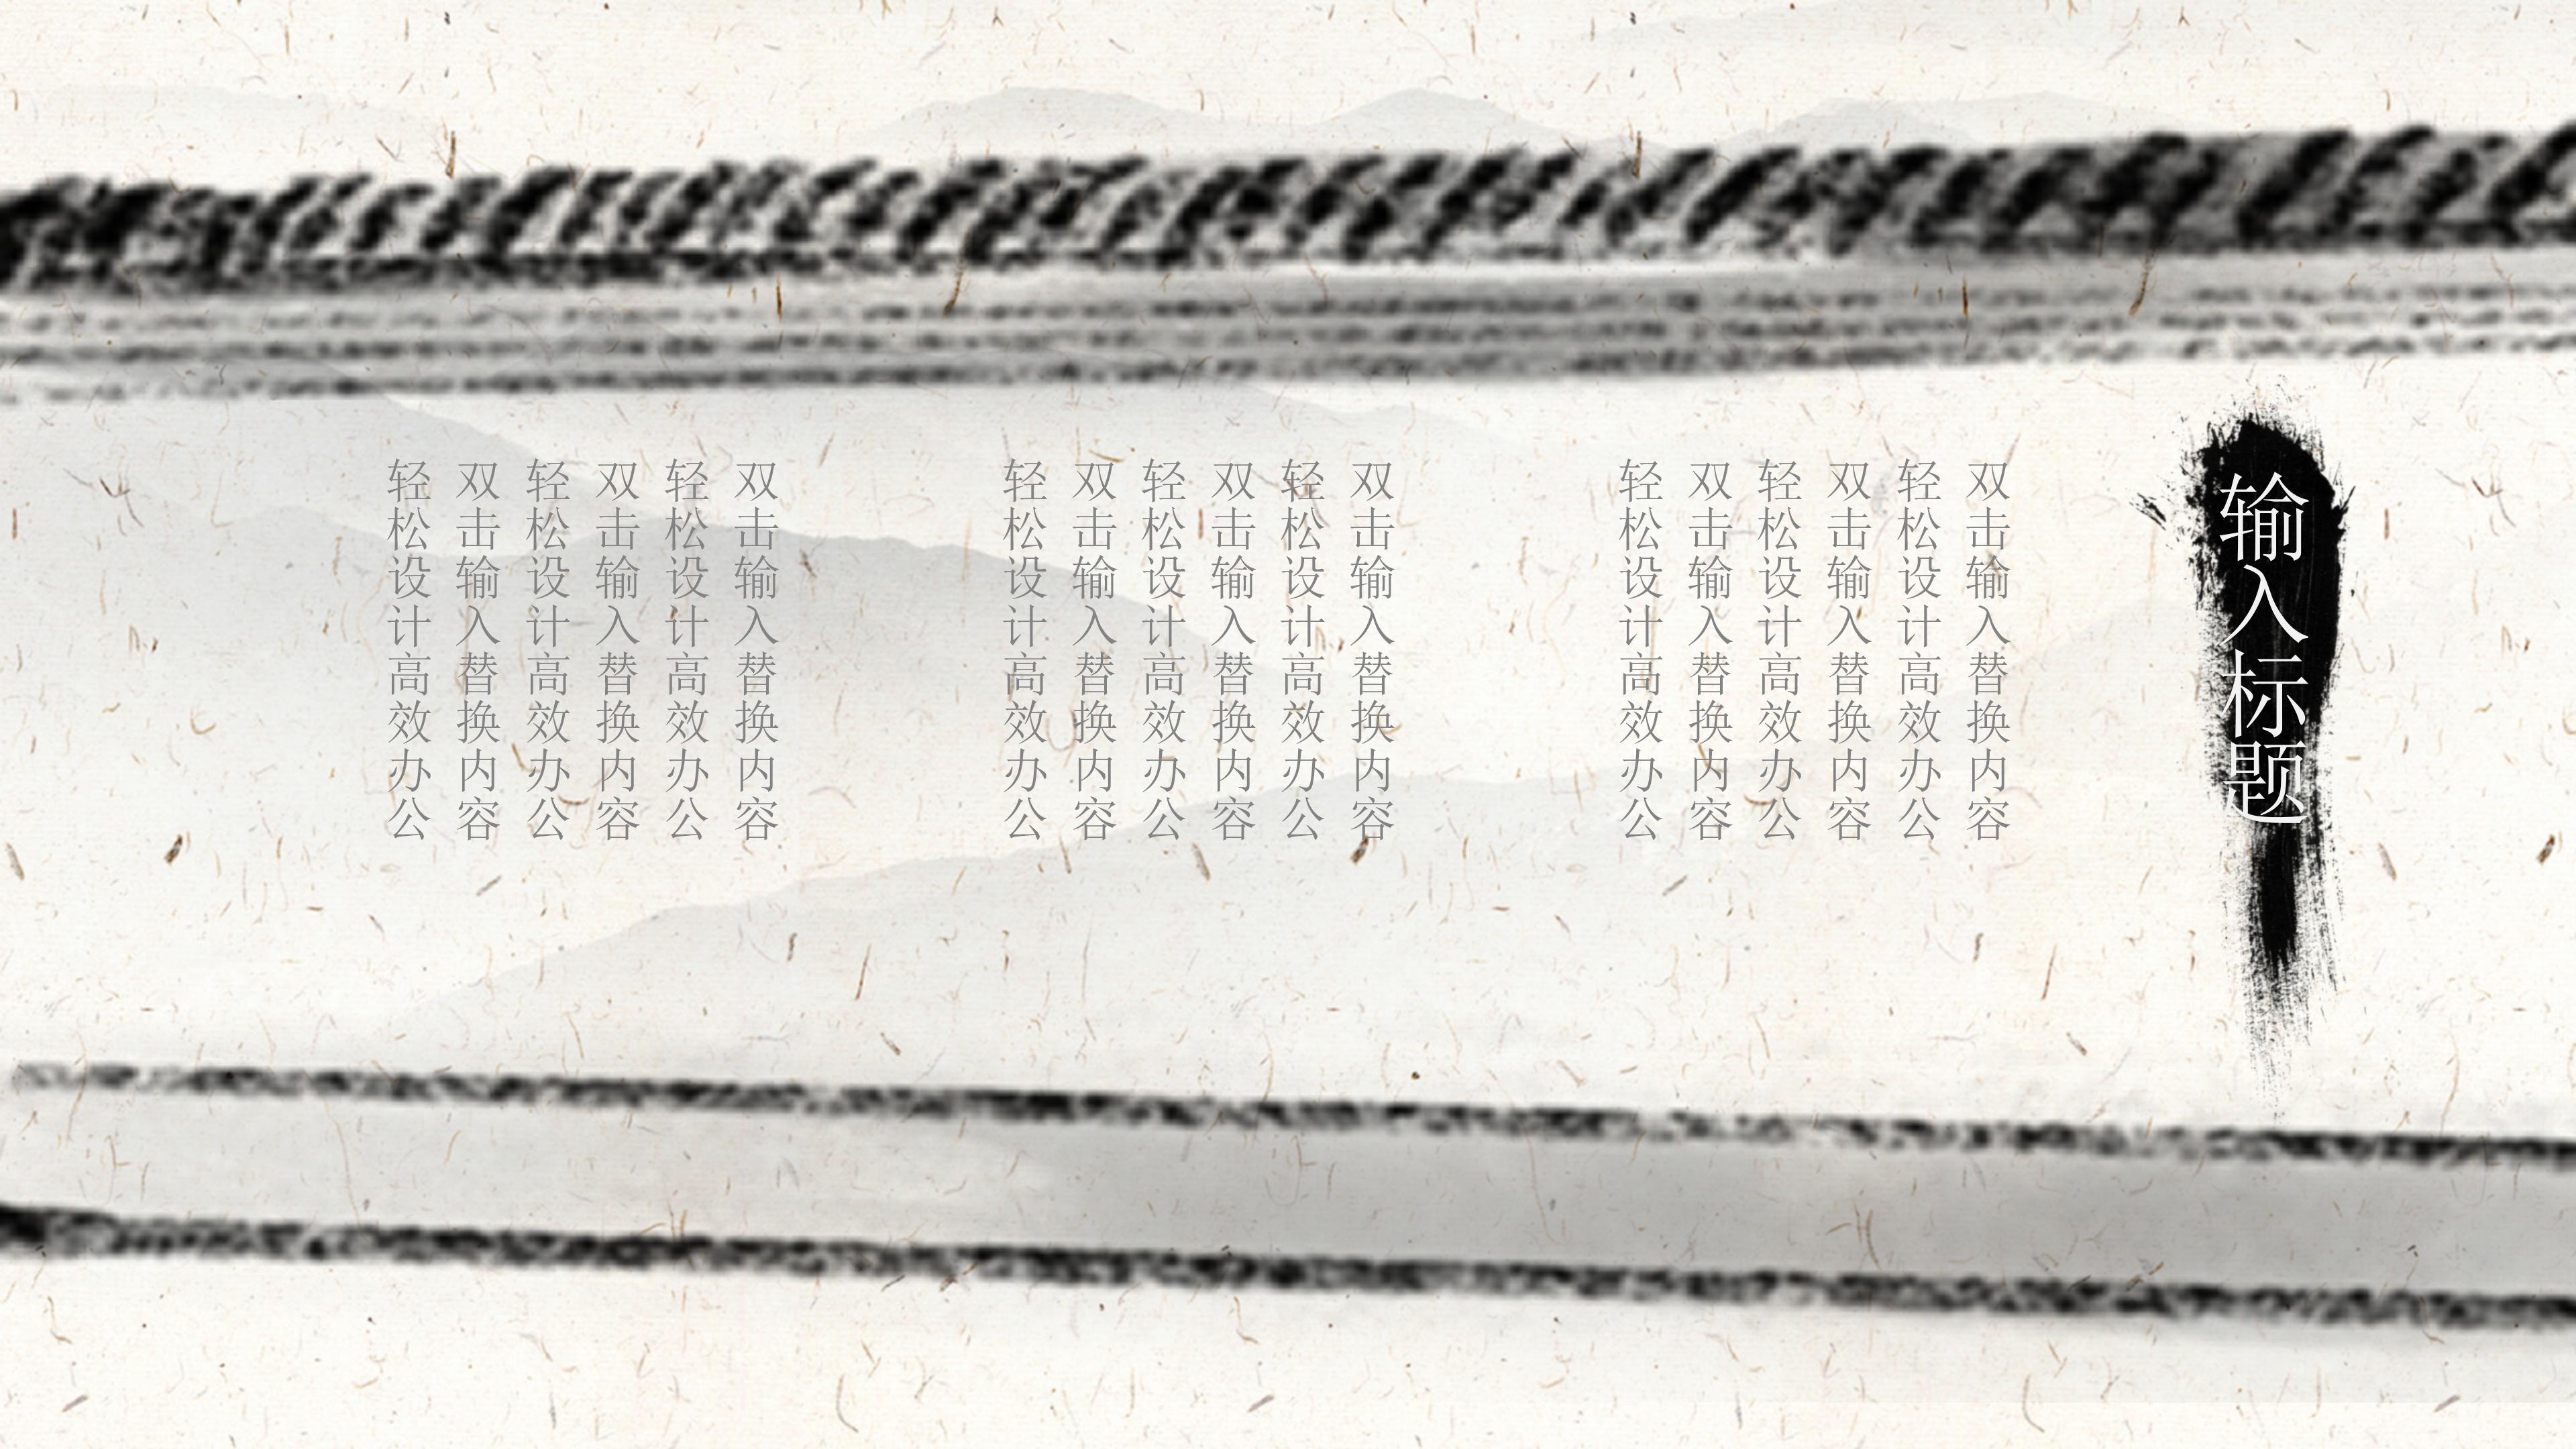 输入标题
双击输入替换内容
轻松设计高效办公
双击输入替换内容
轻松设计高效办公
双击输入替换内容
轻松设计高效办公
双击输入替换内容
轻松设计高效办公
双击输入替换内容
轻松设计高效办公
双击输入替换内容
轻松设计高效办公
双击输入替换内容
轻松设计高效办公
双击输入替换内容
轻松设计高效办公
双击输入替换内容
轻松设计高效办公